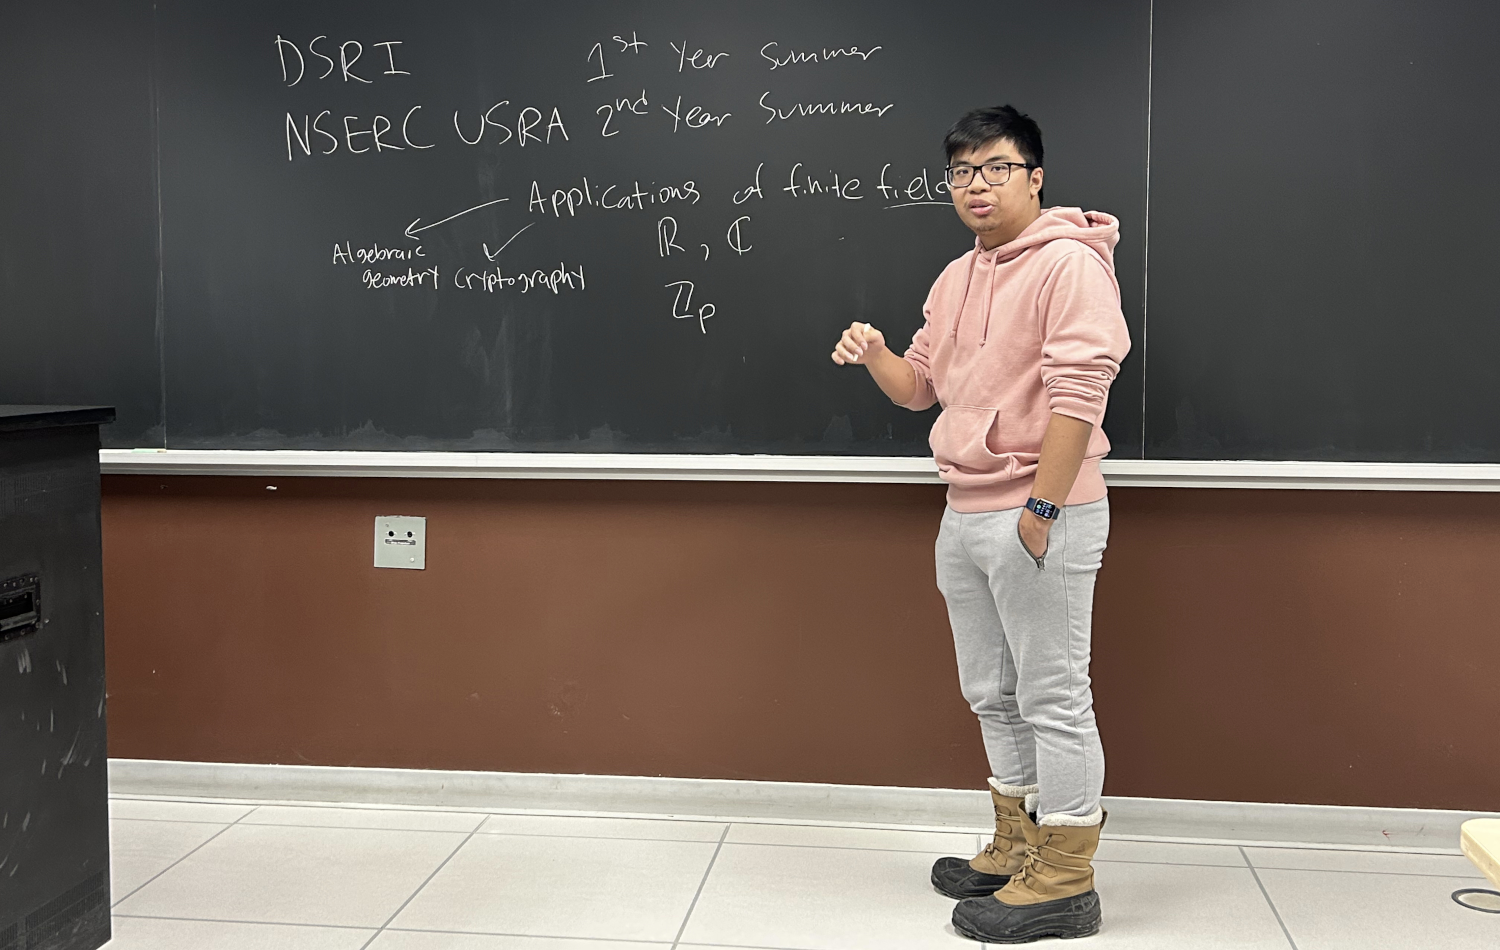 DSRI 1st Year Summer
NSERC USRA 2nd Year Summer
Applications of finite field
ℝ, ℂ
Algebraic
geometry
cryptography
ℤp